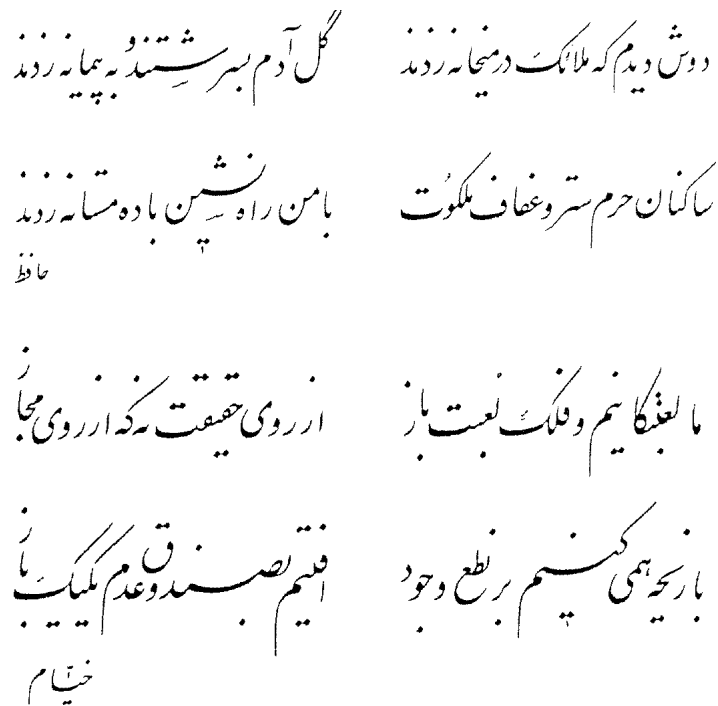 دوش دیدم که ملائک در میخانه زدند گل آدم بسرشتند و به پیمانه زدند
ساکنان حرم ستر و عفاف ملکوت با من راه نشین باده مستانه زدند
حافظ
ما لعبتکانیم و فلک لعبت باز از روی حقیقت نه که از روی مجاز
بازیچه همی کنیم بر نطع وجود افتیم بصندوق عدم یک یک باز
خیّام